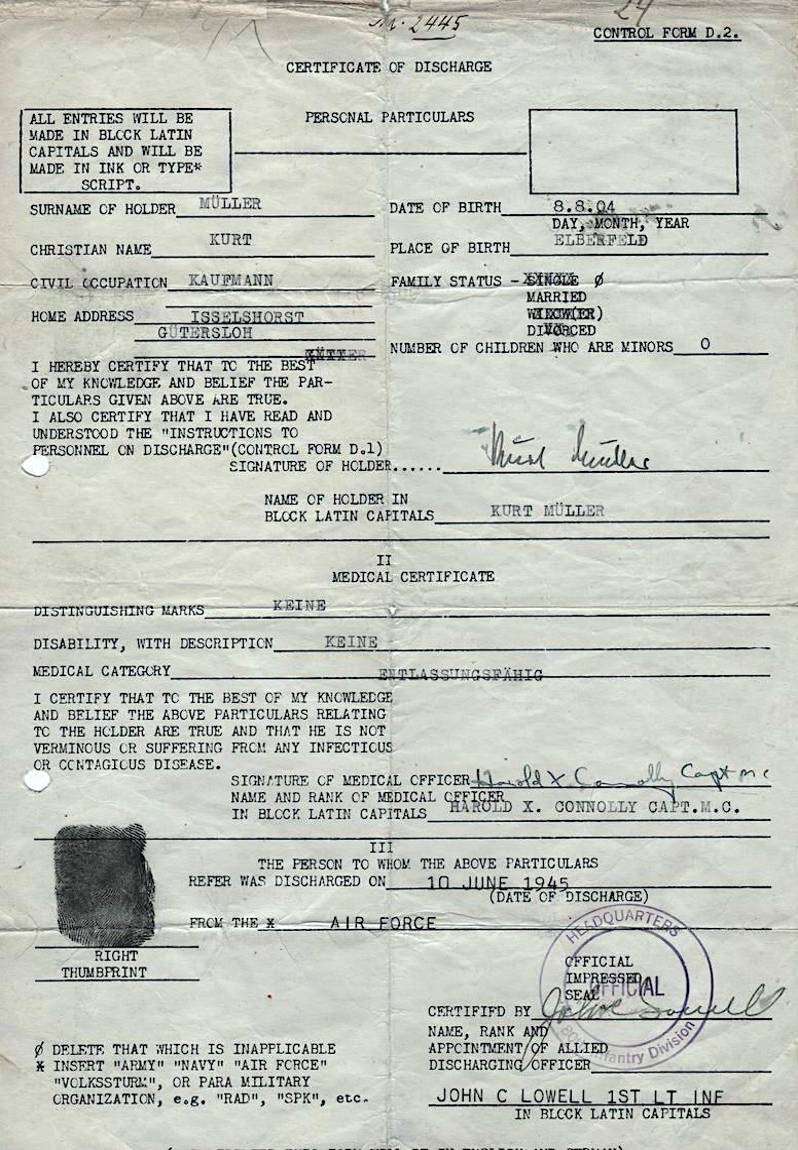 2445
24
CONTROL FORM D.2.
CERTIFICATE OF DISCHARGE
ALL ENTRIES WILL BE
MADE IN BLOCK LATIN
CAPITALS AND WILL BE
MADE IN INK OR TYPE*
SCRIPT.
PERSONAL PARTICULARS
SURNAME OF HOLDER MÜLLER
DATE OF BIRTH 8.8.04
DAY, MONTH, YEAR
CHRISTIAN NAME KURT
PLACE OF BIRTH ELBERFELD
CIVIL OCCUPATION KAUFMANN
FAMILY STATUS - SINGLE ø
MARRIED
WIDOW(ER)
DIVORCED
HOME ADDRESS ISSELSHORST
GÜTERSLOH
NUMBER OF CHILDREN WHO ARE MINORS 0
I HEREBY CERTIFY THAT TO THE BEST
OF MY KNOWLEDGE AND BELIEF THE PAR-
TICULARS GIVEN ABOVE ARE TRUE.
I ALSO CERTIFY THAT I HAVE READ AND
UNDERSTOOD THE "INSTRUCTIONS TO
PERSONNEL ON DISCHARGE"(CONTROL FORM D.1)
SIGNATURE OF HOLDER...... Kurt Müller
NAME OF HOLDER IN
BLOCK LATIN CAPITALS KURT MÜLLER
II
MEDICAL CERTIFICATE
DISTINGUISHING MARKS KEINE
DISABILITY, WITH DESCRIPTION KEINE
MEDICAL CATEGORY ENTLASSUNGSFÄHIG
I CERTIFY THAT TO THE BEST OF MY KNOWLEDGE
AND BELIEF THE ABOVE PARTICULARS RELATING
TO THE HOLDER ARE TRUE AND THAT HE IS NOT
VERMINOUS OR SUFFERING FROM ANY INFECTIOUS
OR CONTAGIOUS DISEASE.
SIGNATURE OF MEDICAL OFFICER Harold X. Connolly Capt MC
NAME AND RANK OF MEDICAL OFFICER
IN BLOCK LATIN CAPITALS HAROLD X. CONNOLLY CAPT.M.C.
III
THE PERSON TO WHOM THE ABOVE PARTICULARS
REFER WAS DISCHARGED ON 10 JUNE 1945
(DATE OF DISCHARGE)
FROM THE * AIR FORCE
RIGHT
THUMBPRINT
HEADQUARTERS
OFFICIAL
Infantry Division
OFFICIAL
IMPRESSED
SEAL
CERTIFIFD BY John C Lowell
NAME, RANK AND
APPOINTMENT OF ALLIED
DISCHARGING OFFICER
JOHN C LOWELL 1ST LT INF
IN BLOCK LATIN CAPITALS
ø DELETE THAT WHICH IS INAPPLICABLE
* INSERT "ARMY" "NAVY" "AIR FORCE"
"VOLKSSTURM", OR PARA MILITARY
ORGANIZATION, e.g. "RAD", "SPK", etc.